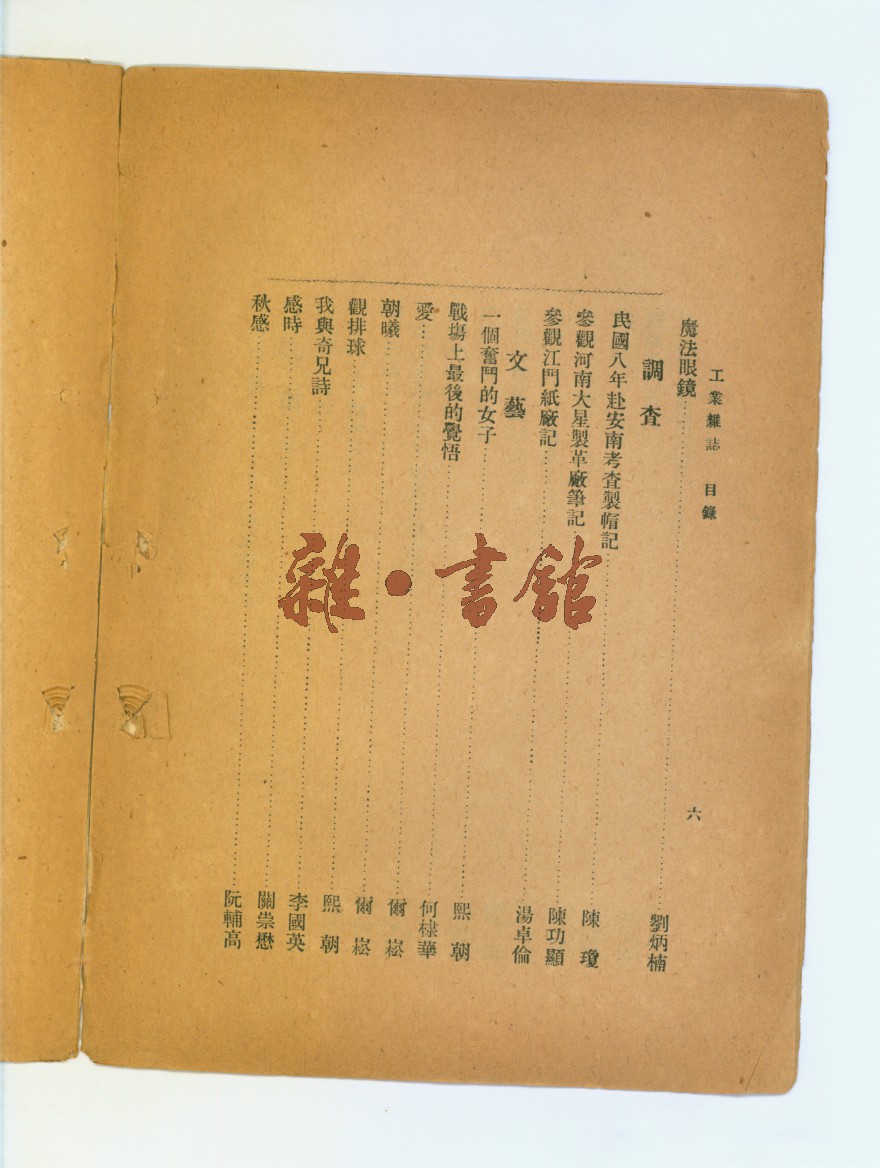 工業雜誌 目錄 六
魔法眼鏡……劉炳楠
調查
民國八年赴安南考查製帽記……陳瓊
參觀河南大星製革廠筆記……陳功顯
參觀江門紙廠記……湯卓倫
文藝
一個奮鬥的女子……熙朝
戰塲上最後的覺悟……何棣華
愛……爾崧
朝曦……爾崧
觀排球……熙朝
我與奇兄詩……李國英
感時……關崇懋
秋感……阮輔高
雜·書館